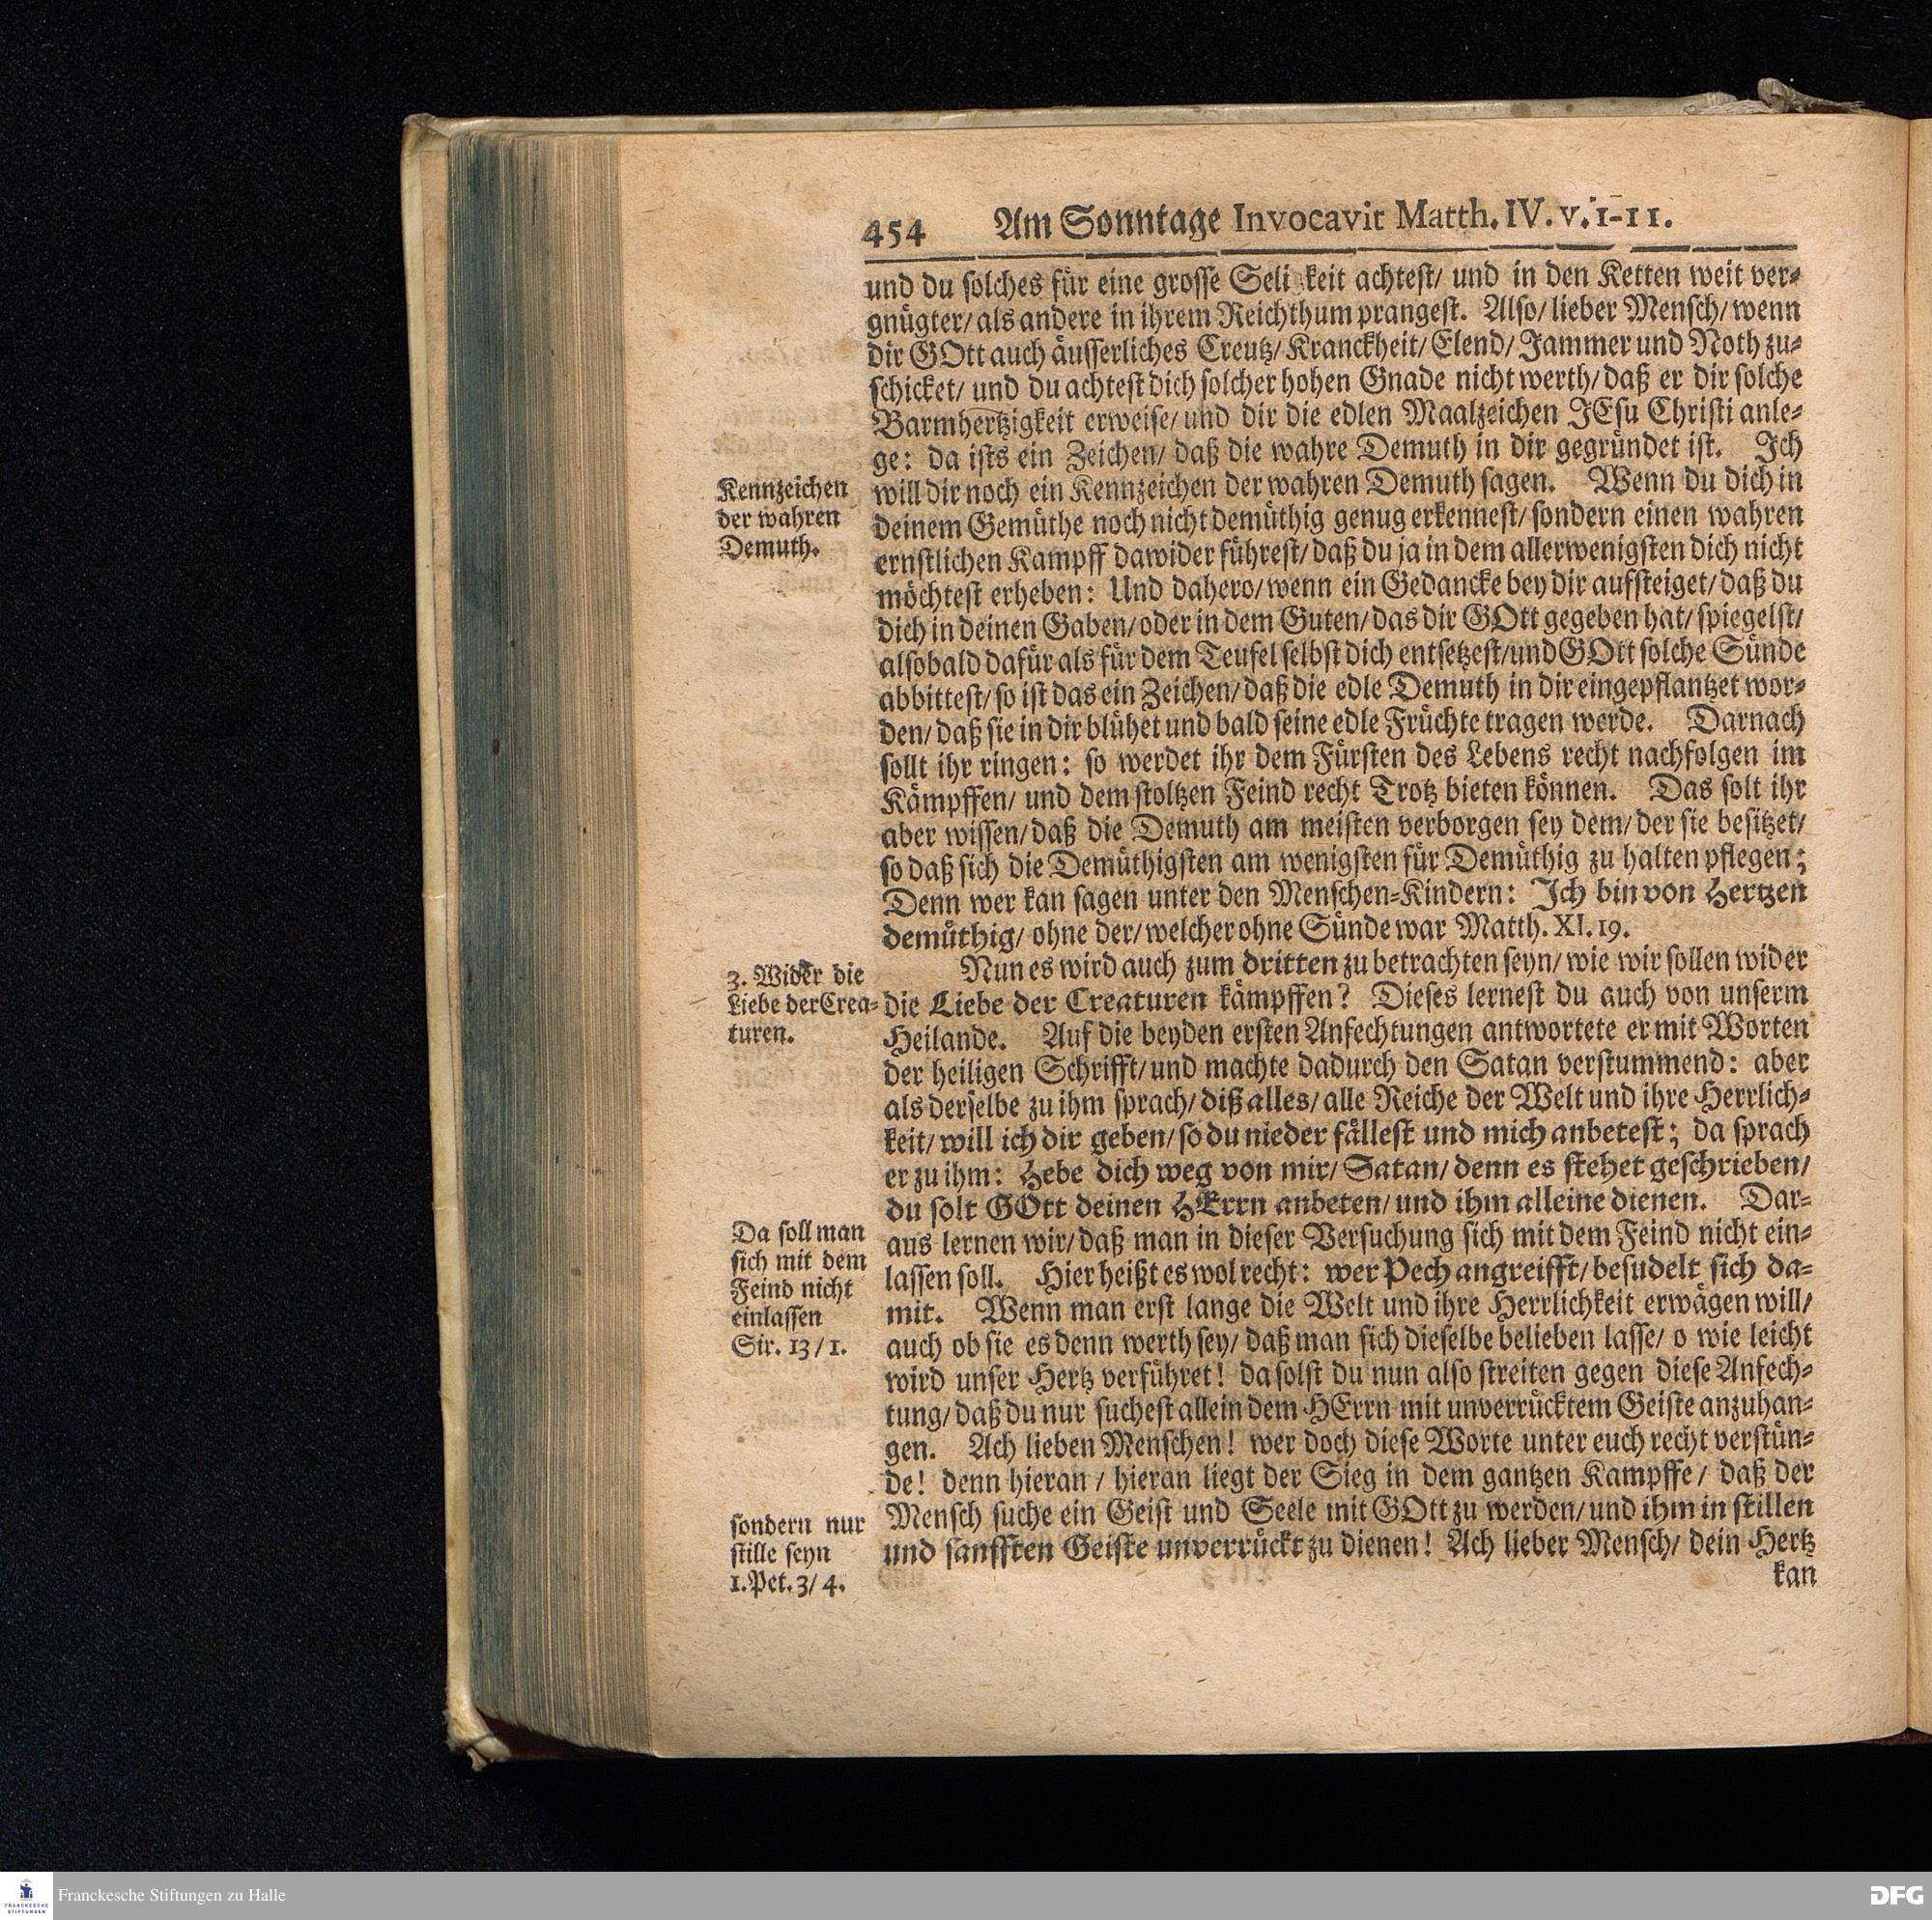 454 Am Sonntage Invocavit Matth. IV. v. 1-11.
und du solches für eine grosse Seli keit achtest/ und in den Ketten weit ver-
gnügter/ als andere in ihrem Reichthum prangest. Also/ lieber Mensch/ wenn
dir GOtt auch äusserliches Creutz/ Kranckheit/ Elend/ Jammer und Noth zu-
schicket/ und du achtest dich solcher hohen Gnade nicht werth/ daß er dir solche
Barmhertzigkeit erweise/ und dir die edlen Maalzeichen JEsu Christi anle-
ge: da ists ein Zeichen/ daß die wahre Demuth in dir gegründet ist. Ich
will dir noch ein Kennzeichen der wahren Demuth sagen. Wenn du dich in
deinem Gemüthe noch nicht demüthig genug erkennest/ sondern einen wahren
ernstlichen Kampff dawider führest/ daß du ja in dem allerwenigsten dich nicht
möchtest erheben: Und dahero/ wenn ein Gedancke bey dir aufsteiget/ daß du
dich in deinen Gaben/ oder in dem Guten/ das dir GOtt gegeben hat/ spiegelst/
alsobald dafür als für dem Teufel selbst dich entsetzest/ und GOtt solche Sünde
abbittest/ so ist das ein Zeichen/ daß die edle Demuth in dir eingepflantzet wor-
den/ daß sie in dir blühet und bald seine edle Früchte tragen werde. Darnach
sollt ihr ringen: so werdet ihr dem Fürsten des Lebens recht nachfolgen im
Kämpffen/ und dem stoltzen Feind recht Trotz bieten können. Das solt ihr
aber wissen/ daß die Demuth am meisten verborgen sey dem/ der sie besitzet/
so daß sich die Demüthigsten am wenigsten für Demüthig zu halten pflegen;
Denn wer kan sagen unter den Menschen-Kindern: Ich bin von Hertzen
demüthig/ ohne der/ welcher ohne Sünde war Matth. XI. 19.
Nun es wird auch zum dritten zu betrachten seyn/ wie wir sollen wider
die Liebe der Creaturen kämpffen? Dieses lernest du auch von unserm
Heilande. Auf die beyden ersten Anfechtungen antwortete er mit Worten
der heiligen Schrifft/ und machte dadurch den Satan verstummend: aber
als derselbe zu ihm sprach/ diß alles/ alle Reiche der Welt und ihre Herrlich-
keit/ will ich dir geben/ so du nieder fällest und mich anbetest; da sprach
er zu ihm: Hebe dich weg von mir/ Satan/ denn es stehet geschrieben/
du solt GOtt deinen HErrn anbeten/ und ihm alleine dienen. Dar-
aus lernen wir/ daß man in dieser Versuchung sich mit dem Feind nicht ein-
lassen soll. Hier heißt es wol recht: wer Pech angreifft/ besudelt sich da-
mit. Wenn man erst lange die Welt und ihre Herrlichkeit erwägen will/
auch ob sie es denn werth sey/ daß man sich dieselbe belieben lasse/ o wie leicht
wird unser Hertz verführet! da solst du nun also streiten gegen diese Anfech-
tung/ daß du nur suchest allein dem HErrn mit unverrücktem Geiste anzuhan-
gen. Ach lieben Menschen! wer doch diese Worte unter euch recht verstün-
de! denn hieran / hieran liegt der Sieg in dem gantzen Kampffe/ daß der
Mensch suche ein Geist und Seele mit GOtt zu werden/ und ihm in stillen
und sanfften Geiste unverrückt zu dienen! Ach lieber Mensch/ dein Hertz
kan
Kennzeichen
der wahren
Demuth.
3. Wider die
Liebe der Crea-
turen.
Da soll man
sich mit dem
Feind nicht
einlassen
Sir. 13/ 1.
sondern nur
stille seyn
1. Pet. 3/ 4.
FRANCKESCHE
STIFTUNGEN
Franckesche Stiftungen zu Halle
DFG